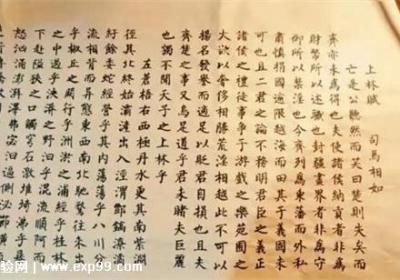 上林賦　司馬相如
亡是公聽然而笑曰楚則失矣而
齊亦未為得也夫使諸侯納貢者非為
財幣所以述職也封疆畫界者非為守
御所以禁淫也今齊列為東藩而外私
肅慎捐國逾限越海而田其于義固未
可也且二君之論不務明君臣之義正
諸侯之禮徒事爭于游戲之樂苑囿之
大欲以奢侈相勝荒淫相越此不可以
揚名發譽而適足以貶君自損也且夫
齊楚之事又烏足道乎君未睹夫巨麗
也獨不聞天子之上林乎
左蒼梧右西極丹水更其南紫淵
徑其北終始灞滻出入涇渭酆鎬潦潏
紆餘委蛇經營乎其內蕩蕩乎八川分
流相背而異態東西南北馳騖往來出
乎椒丘之闕行乎洲淤之浦經乎桂林
之中過乎泱漭之野汩乎混流順阿而
下赴隘狹之口觸穹石激堆埼沸乎暴
怒洶涌澎湃滭弗宓汩逼側泌瀄
验网 www.exp99.com